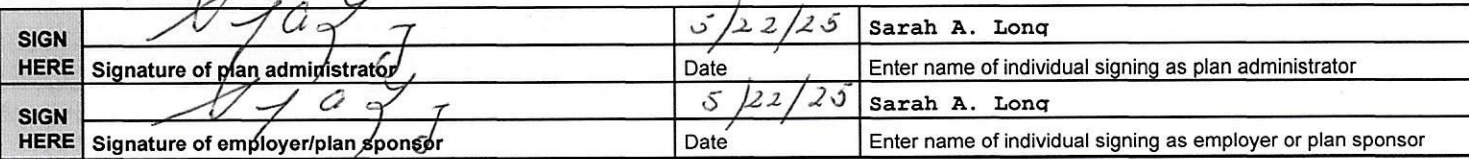 SIGN HERE
5/22/25 Sarah A. Long
Signature of plan administrator Date Enter name of individual signing as plan administrator
SIGN HERE
5/22/25 Sarah A. Long
Signature of employer/plan sponsor Date Enter name of individual signing as employer or plan sponsor